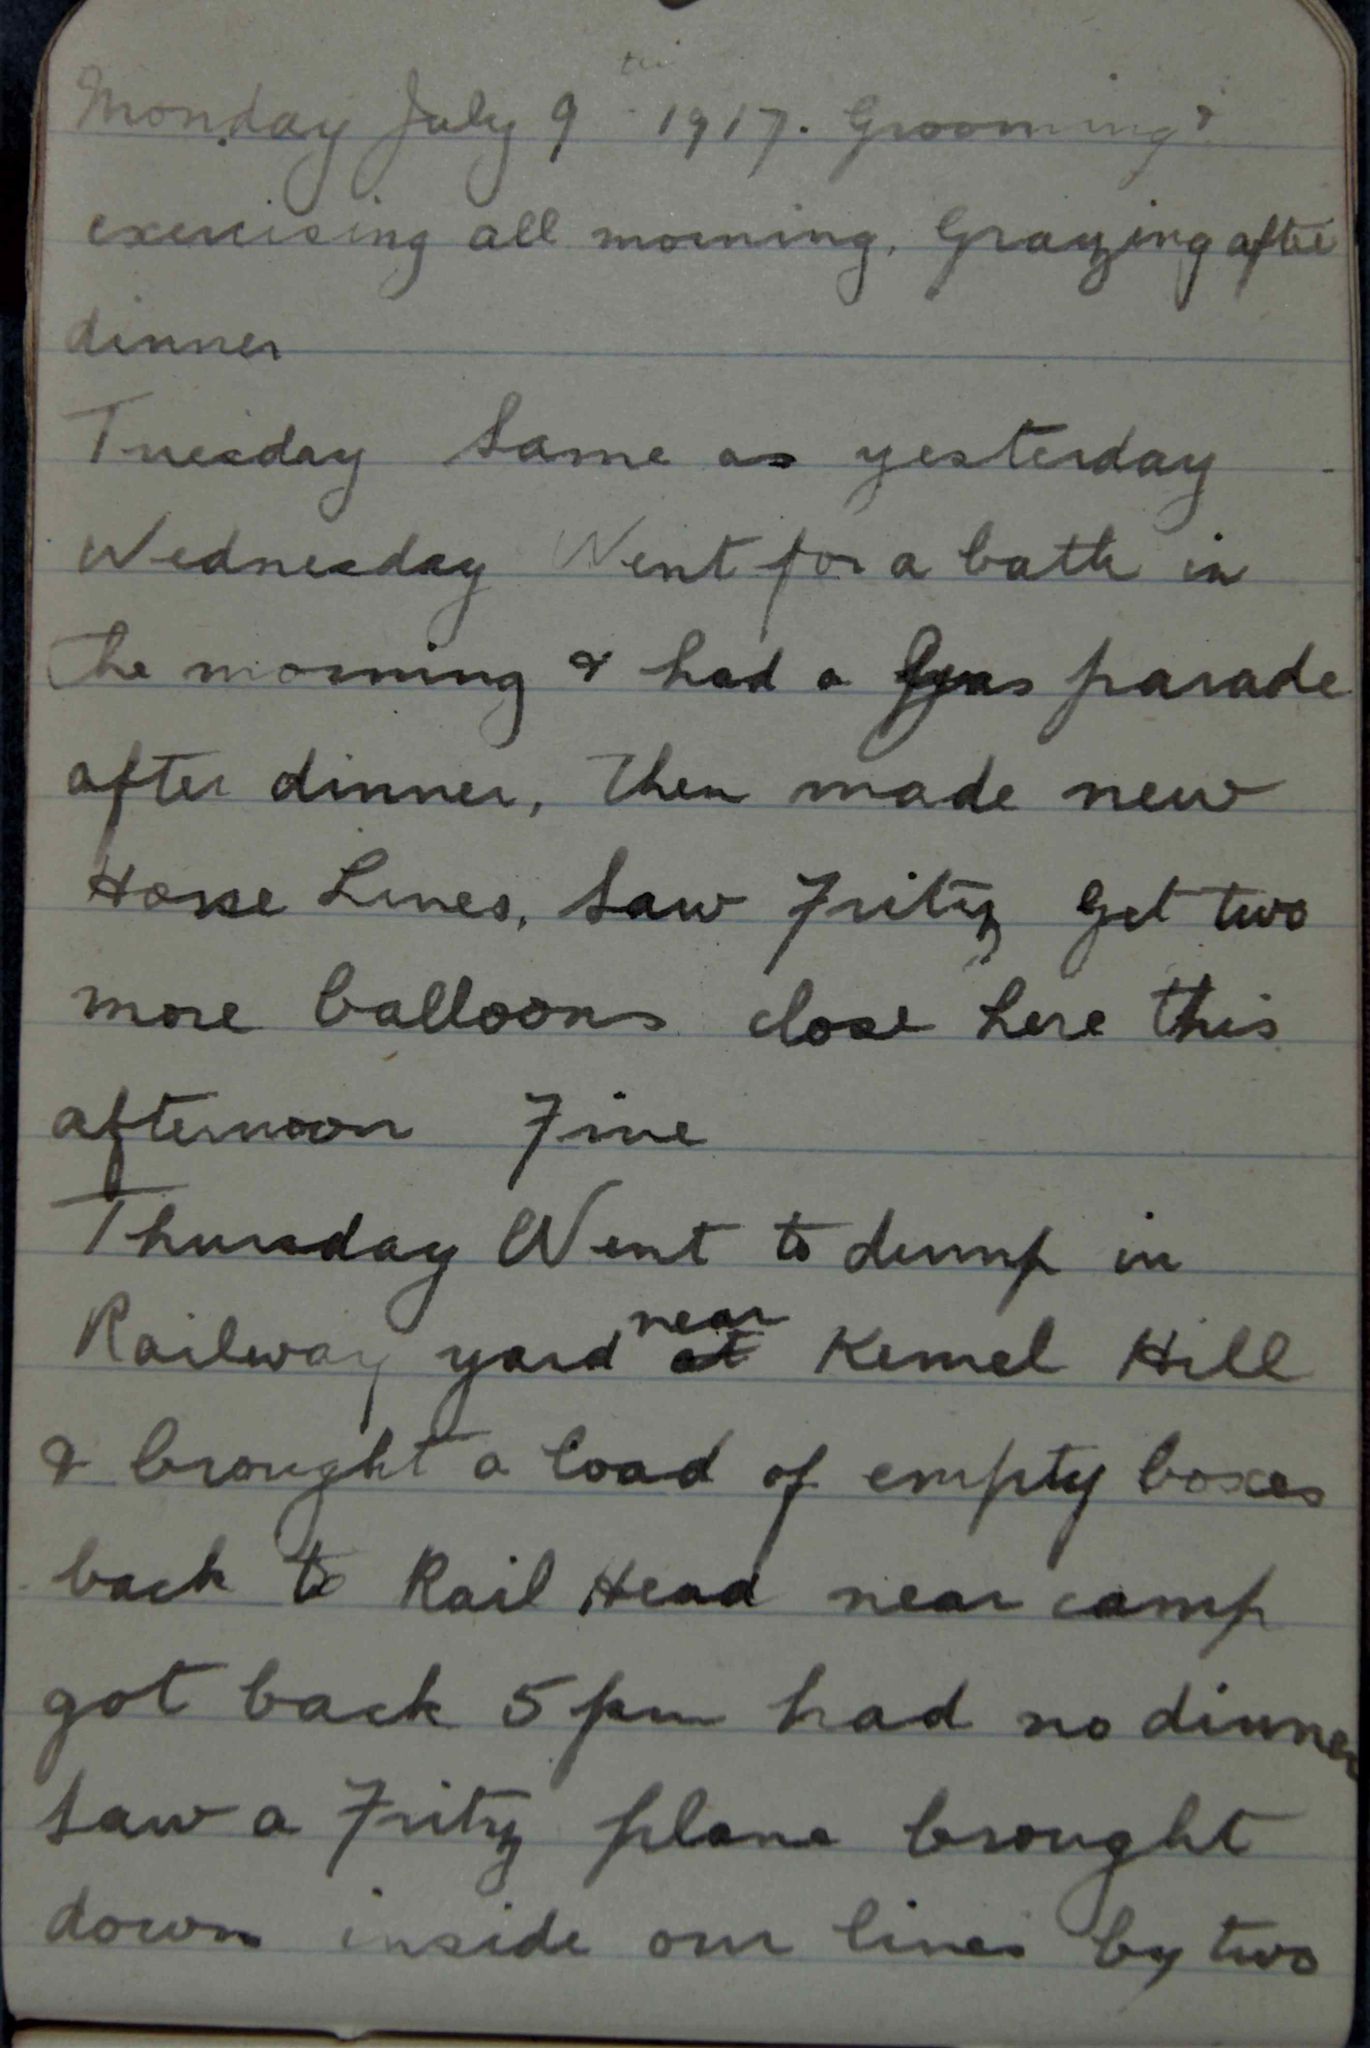 Monday July 9th 1917. Grooming &
exercising all morning. Grazing after
dinner
Tuesday Same as yesterday
Wednesday Went for a bath in
the morning & had a Gas parade
after dinner, Then made new
Horse Lines. Saw Fritz get two
more balloons close here this
afternoon Fine
Thursday Went to dump in
Railway yard near at Kemel Hill
& brought a load of empty boxes
back to Rail Head near camp
got back 5 pm had no dinner
Saw a Fritz plane brought
down inside our lines by two